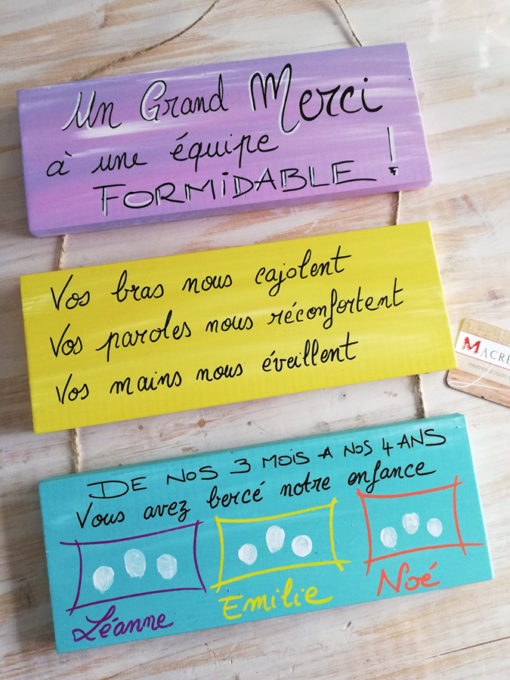 Un Grand Merci
à une équipe
FORMIDABLE !
Vos bras nous cajolent
Vos paroles nous réconfortent
Vos mains nous éveillent
DE NOS 3 MOIS A NOS 4 ANS
Vous avez bercé notre enfance
Léanne
Emilie
Noé